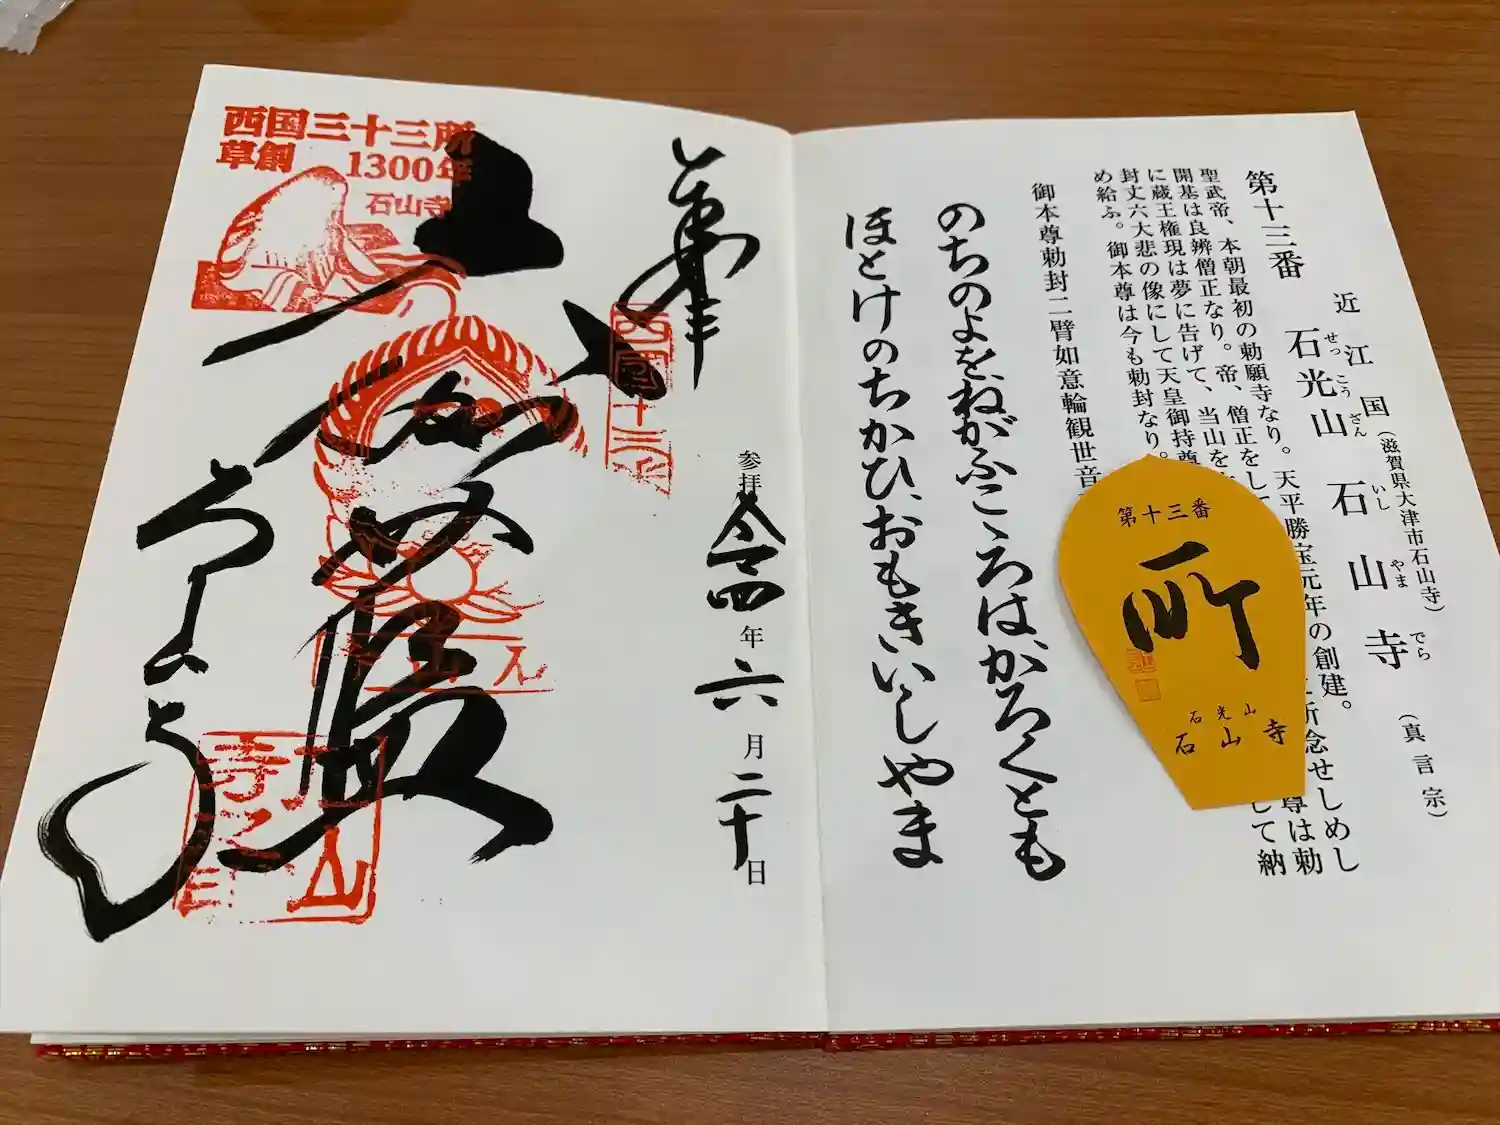 第十三番
近江国（滋賀県大津市石山寺）
石光山 石山寺（真言宗）
せっこうざん いしやまでら
聖武帝、本朝最初の勅願寺なり。天平勝宝元年の創建。
開基は良辨僧正なり。帝、僧正をして
祈念せしめし
に蔵王権現は夢に告げて、当山を
尊は勅
封丈六大悲の像にして天皇御持尊
して納
め給ふ。御本尊は今も勅封なり。
御本尊勅封二臂如意輪観世音
のちのよをねがふこゝろは、かろくとも
ほとけのちかひ、おもきいしやま
第十三番
所
石光山
石山寺
奉
参拝 令和四年六月二十日
西国十三番
西国三十三所
草創 1300年
石山寺
石山寺